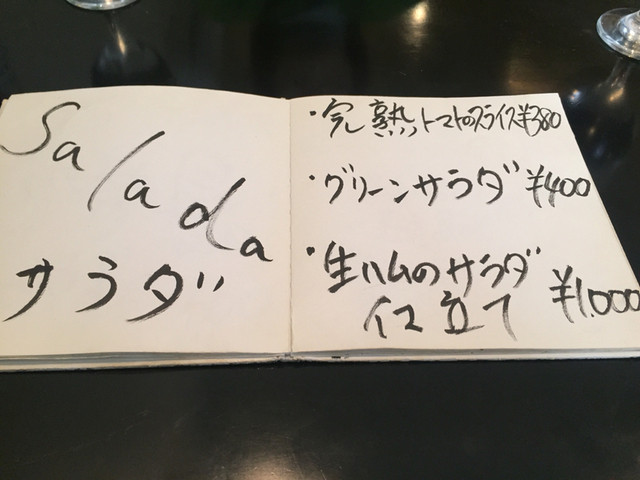 Salada
サラダ
・完熟トマトのスライス¥380
・グリーンサラダ ¥400
・生ハムのサラダ
仕立て ¥1,000